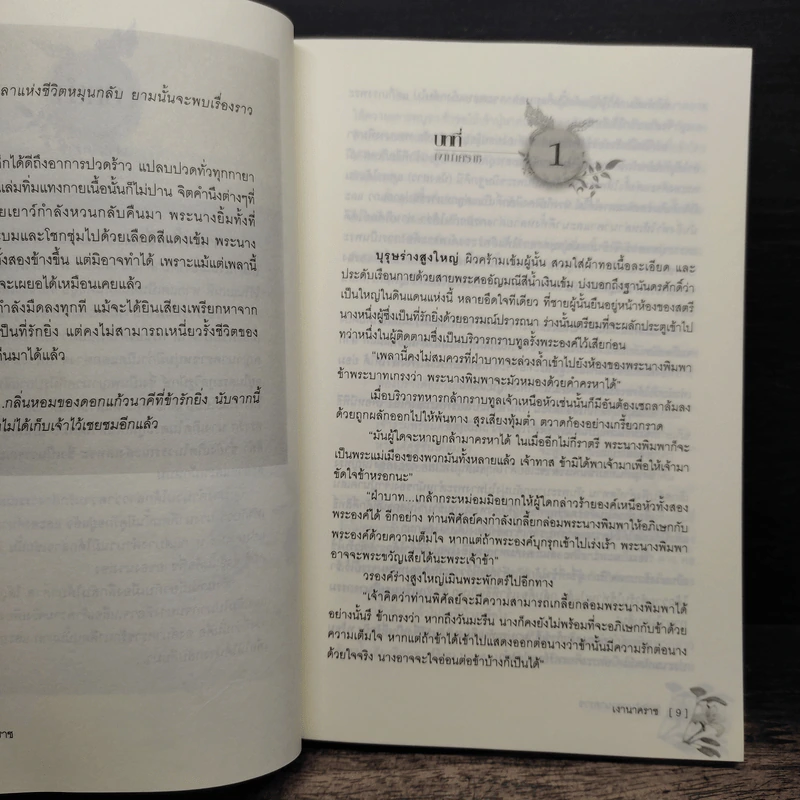 ลาแห่งชีวิตหมุนกลับ ยามนั้นจะพบเรื่องราว
ึกได้ดีถึงอาการปวดร้าว แปลบปวดทั่วทุกกายา
แล่มทิ่มแทงกายเนื้อนั้นก็ไม่ปาน จิตคำนึงต่างๆที่
ยเยาว์กำลังหวนกลับคืนมา พระนางยิ้มทั้งที่
บมและโชกชุ่มไปด้วยเลือดสีแดงเข้ม พระนาง
ั้งสองข้างขึ้น แต่มิอาจทำได้ เพราะแม้แต่เพลานี้
จะเผยอได้เหมือนเคยแล้ว
กำลังมืดลงทุกที แม้จะได้ยินเสียงเพรียกหาจาก
เป็นที่รักยิ่ง แต่คงไม่สามารถเหนี่ยวรั้งชีวิตของ
คืนมาได้แล้ว
...กลิ่นหอมของดอกแก้วนาคีที่ข้ารักยิ่ง นับจากนี้
ไม่ได้เก็บเจ้าไว้เชยชมอีกแล้ว
ราช
บทที่
1
บุรุษร่างสูงใหญ่ ผิวคร้ามเข้มผู้นั้น สวมใส่ผ้าทอเนื้อละเอียด และ
ประดับเรือนกายด้วยสายพระศออัญมณีสีน้ำเงินเข้ม บ่งบอกถึงฐานันดรศักดิ์ว่า
เป็นใหญ่ในดินแดนแห่งนี้ หลายอึดใจทีเดียว ที่ชายผู้นั้นยืนอยู่หน้าห้องของสตรี
นางหนึ่งผู้ซึ่งเป็นที่รักยิ่งด้วยอารมณ์ปรารถนา ร่างนั้นเตรียมที่จะผลักประตูเข้าไป
ทว่าหนึ่งในผู้ติดตามซึ่งเป็นบริวารกราบทูลรั้งพระองค์ไว้เสียก่อน
"เพลานี้คงไม่สมควรที่ฝ่าบาทจะล่วงล้ำเข้าไปยังห้องของพระนางพิมพา
ข้าพระบาทเกรงว่า พระนางพิมพาจะมัวหมองด้วยคำครหาได้"
เมื่อบริวารทหารกล้ากราบทูลเจ้าเหนือหัวเช่นนั้นก็มีอันต้องเซถลาล้มลง
ด้วยถูกผลักออกไปให้พ้นทาง สุรเสียงทุ้มต่ำ ตวาดก้องอย่างเกรี้ยวกราด
"มันผู้ใดจะหาญกล้ามาครหาได้ ในเมื่ออีกไม่กี่ราตรี พระนางพิมพาก็จะ
เป็นพระแม่เมืองของพวกมันทั้งหลายแล้ว เจ้าทาส ข้ามิได้พาเจ้ามาเพื่อให้เจ้ามา
ขัดใจข้าหรอกนะ"
"ฝ่าบาท...เกล้ากระหม่อมมิอยากให้ผู้ใดกล่าวร้ายองค์เหนือหัวทั้งสอง
พระองค์ได้ อีกอย่าง ท่านพิศัลย์คงกำลังเกลี้ยกล่อมพระนางพิมพาให้อภิเษกกับ
พระองค์ด้วยความเต็มใจ หากแต่ถ้าพระองค์บุกรุกเข้าไปเร่งเร้า พระนางพิมพา
อาจจะพระขวัญเสียได้นะพระเจ้าข้า"
วรองค์ร่างสูงใหญ่เมินพระพักตร์ไปอีกทาง
"เจ้าคิดว่าท่านพิศัลย์จะมีความสามารถเกลี้ยกล่อมพระนางพิมพาได้
อย่างนั้นรึ ข้าเกรงว่า หากถึงวันมะรืน นางก็คงยังไม่พร้อมที่จะอภิเษกกับข้าด้วย
ความเต็มใจ หากแต่ถ้าข้าได้เข้าไปแสดงออกต่อนางว่าข้านั้นมีความรักต่อนาง
ด้วยใจจริง นางอาจจะใจอ่อนต่อข้าบ้างก็เป็นได้"
เงานาคราช [ 9 ]